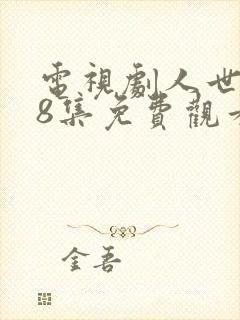 電視劇人世
8集免費觀
金吾